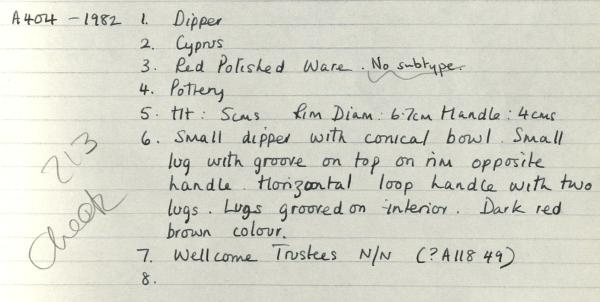 A404 - 1982 1. Dipper
2. Cyprus
3. Red Polished Ware. No subtype.
4. Pottery
5. Ht: 5cms Rim Diam: 6.7cm Handle: 4cms
6. Small dipper with conical bowl. Small
lug with groove on top on rim opposite
handle. Horizontal loop handle with two
lugs. Lugs grooved on interior. Dark red
brown colour.
7. Wellcome Trustees N/N (?A11849)
8.
Check 213